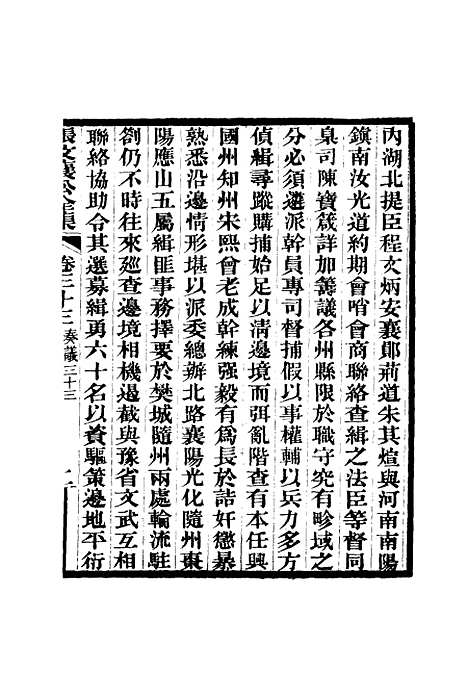 內湖北提臣程文炳安襄鄖荊道朱其煊與河南南陽
鎮南汝光道約期會哨會商聯絡查緝之法臣等督同
臬司陳寶箴詳加籌議各州縣限於職守究有畛域之
分必須遴派幹員專司督捕假以事權輔以兵力多方
偵緝尋蹤購捕始足以清邊境而弭亂階查有本任興
國州知州宋熙曾老成幹練强毅有為長於詰奸懲暴
熟悉沿邊情形堪以派委總辦北路襄陽光化隨州棗
陽應山五屬緝匪事務擇要於樊城隨州兩處輪流駐
劄仍不時往來廵查邊境相機遏截與豫省文武互相
聯絡協助令其選募緝勇六十名以資驅策邊地平衍
張文襄公全集 卷三十三 奏議三十三